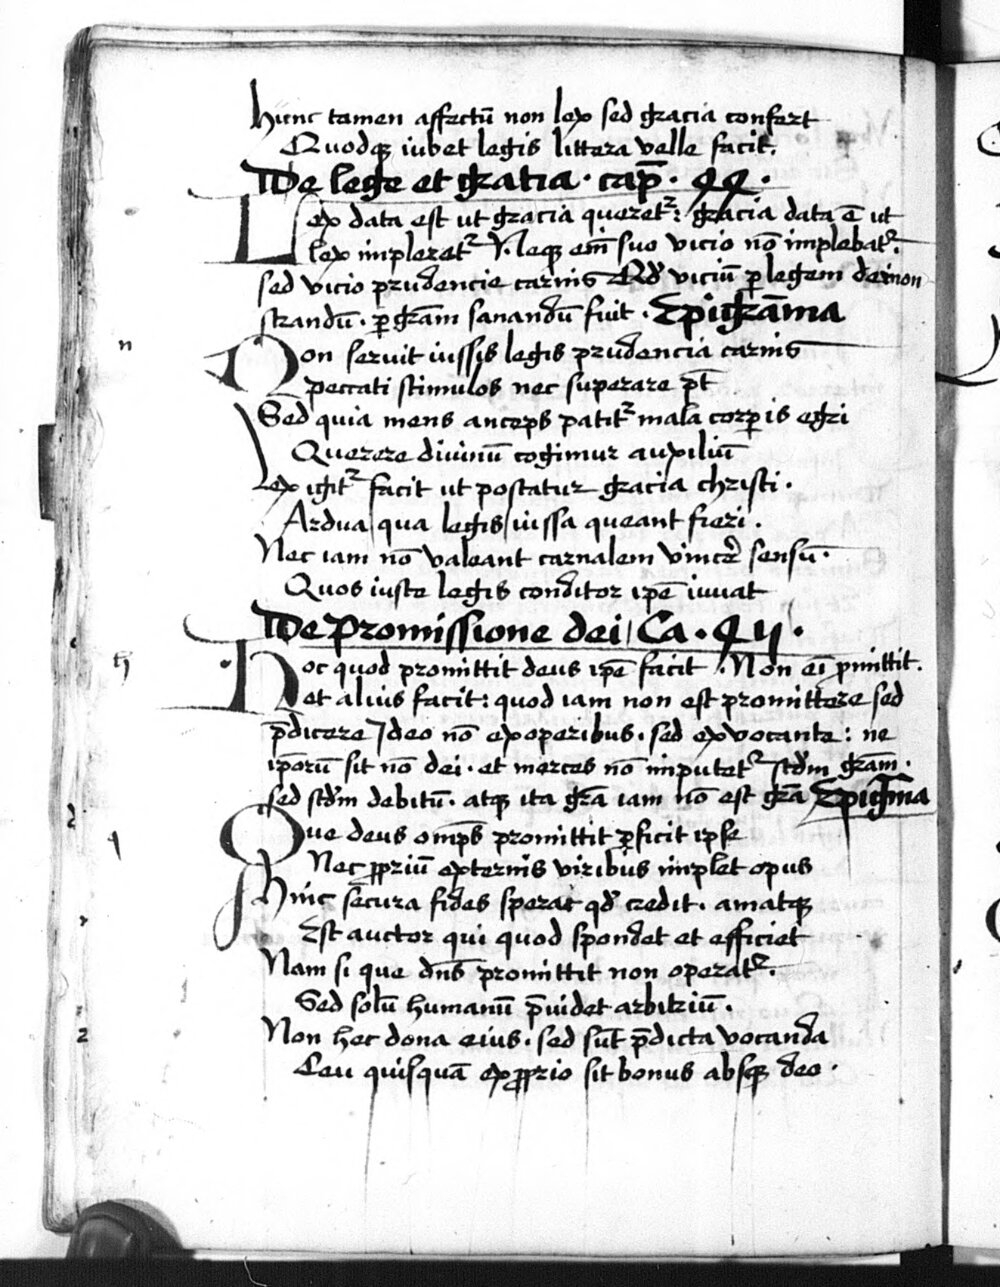 hunc tamen affectū non lex sed gracia confert
Quodq̧ iubet legis littera velle facit.
De lege et gratia . cap̄ . QQ .
Lex data est ut gracia queret᷑ : gracia data ē ut
lex impleret᷑ . Neq̧ em̄ suo vicio nō implebat᷑.
sed vicio prudencie carnis Qd̕ viciū ꝑ legem demon
strandū . ꝑ grām sanandū fuit . Epigrāma
Non seruit iussis legis prudencia carnis
Peccati stimulos nec superare pt̄
Sed quia mens anceps patit᷑ mala corꝑis egri
Querere diuinū cogimur auxiliū
Lex igit᷑ facit ut poscatur gracia christi .
Ardua qua legis iussa queant fieri .
Nec iam nō valeant carnalem vincer̄ sensū .
Quos iuste legis conditor ip̄e iuuat
De Promissione dei Ca . QII .
Hoc quod promittit deus ip̄e facit . Non eī ꝓmittit .
et alius facit : quod iam non est promittere sed
p̄dicere Ideo nō ex operibus . sed ex vocante : ne
ip̄orū sit nō dei . et merces nō imputet᷑ scd̄m grām .
sed scd̄m debitū . atq̧ ita grā iam nō est grā Epigr̄ma
Que deus omp̄s promittit ꝑficit ipse
Nec ꝓpriū externis viribus implet opus
Hinc secura fides sperat qd̕ credit . amatq̧
Est auctor qui quod spondet et efficiet
Nam si que dn̄s promittit non operat᷑ .
Sed solū humanū p̄uidet arbitriū .
Non hec dona eius . sed sūt p̄dicta vocanda
Ceu quisquā ex ꝓprio sit bonus absq̧ deo .